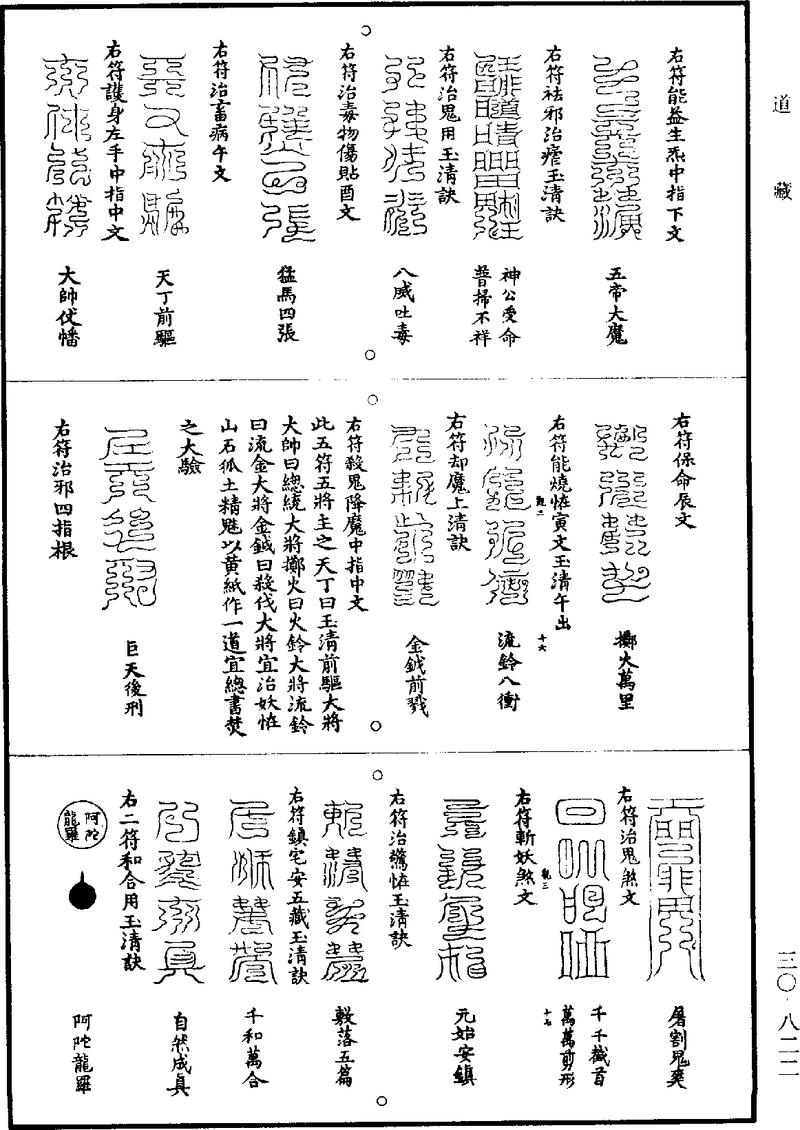 道藏
右符能益生炁中指下文
五帝大魔
右符祛邪治瘧玉清訣
神公受命
普掃不祥
右符治鬼用玉清訣
八威吐毒
右符治毒物傷貼酉文
猛馬四張
右符治畜病午文
天丁前驅
右符護身左手中指中文
大帥仗幡
右符保命辰文
擲火萬里
右符能燒恠寅文玉清午出
流鈴八衝
十六
右符却魔上清訣
金鉞前戮
右符殺鬼降魔中指中文
此五符五將主之天丁曰玉清前驅大將
大帥曰總統大將擲火曰火鈴大將流鈴
曰流金大將金鉞曰殺伐大將宜治妖恠
山石狐土精魅以黄紙作一道宜總書焚
之大驗
巨天後刑
右符治邪四指根
屠割鬼爽
右符治鬼煞文
千千截首
萬萬剪形
十七
右符斬妖煞文
元始安鎮
右符治驚恠玉清訣
敷落五篇
右符鎮宅安五藏玉清訣
千和萬合
自然成真
右二符和合用玉清訣
阿陀
龍羅
阿陀龍羅
三〇·八二二